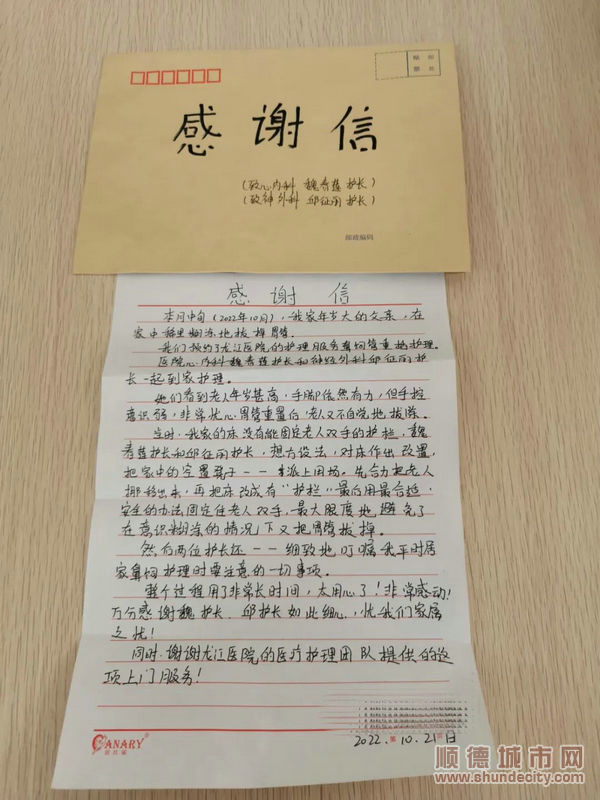 贴 邮
票 处
感谢信
(致心内科 魏秀莲护长)
(致神外科 邱征丽护长)
邮政编码
感谢信
本月中旬(2022年10月),我家年岁大的父亲,在
家中稀里糊涂地拔掉胃管。
我们预约了龙江医院的护理服务鼻饲管重插护理。
医院心内科魏秀莲护长和神经外科邱征丽护
长一起到家护理。
她们看到老人年岁甚高,手脚依然有力,但手控
意识弱,非常忧心胃管重置后老人又不自觉地拔除。
当时,我家的床没有能固定老人双手的护栏,魏
秀莲护长和邱征丽护长,想方设法,对床作出改置,
把家中的空置凳子一一派上用场。先合力把老人
挪移出来,再把床改成有“护栏”最后用最合适、
安全的办法固定住老人双手,最大限度地避免了
在意识糊涂的情况下又把胃管拔掉。
然后两位护长还一一细致地叮嘱我平时居
家鼻饲护理时要注意的一切事项。
整个过程用了非常长时间,太用心了!非常感动!
万分感谢魏护长、邱护长如此细心,忧我们家属
之忧!
同时,谢谢龙江医院的医疗护理团队提供的这
项上门服务!
CANARY
2022.第10.21页日
顺德城市网
www.shundecity.com